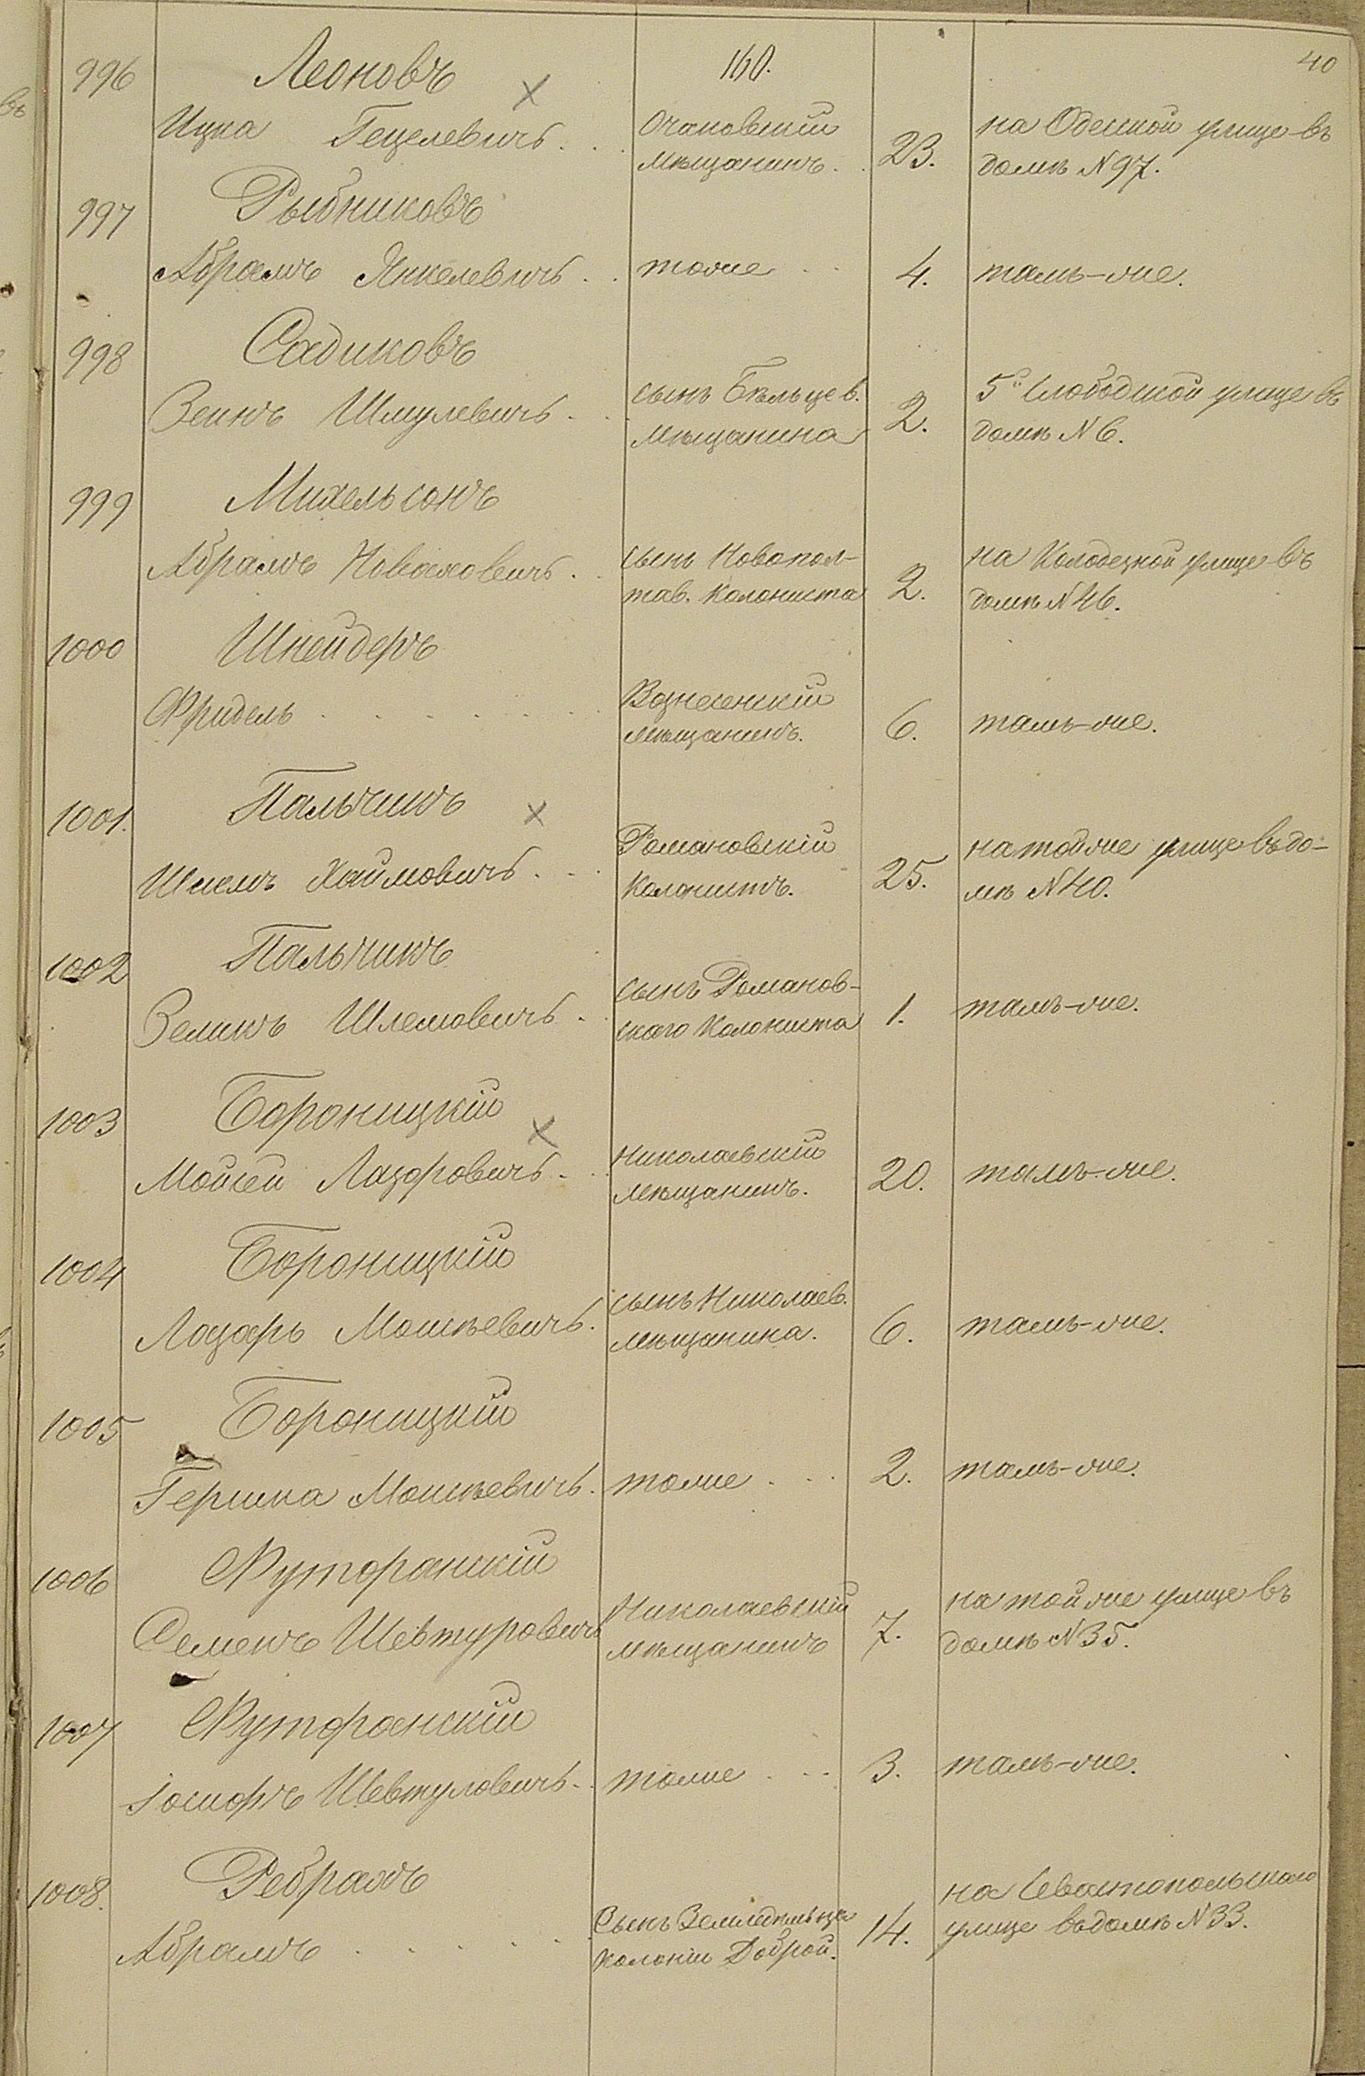 160.
40
996 Леоновъ
Ицка Гецелевичъ. Очаковскій мѣщанинъ. 23. на Одесской улице въ
домѣ N 97.
997 Рыбниковъ
Абрамъ Янкелевичъ. тоже 4. тамъ-же.
998 Садиковъ
Зеикъ Шмулевичъ. сынъ Бѣльцев. мѣщанина 2. 5й Слободской улице въ
домѣ N 6.
999 Михельсонъ
Абрамъ Новаховичъ. сынъ Новопол-
тав. колониста 2. на Колодезной улице въ
домѣ N 46.
1000 Шнейдеръ
Фридель Вознесенскій
мѣщанинъ. 6. тамъ-же.
1001. Пальчикъ
Шлемъ Хаймовичъ. Романовскій
колонистъ. 25. на той же улице въ до-
мѣ N 40.
1002 Пальчикъ
Зеликъ Шлемовичъ. сынъ Романов-
скаго колониста 1. тамъ-же.
1003 Бороницкій
Мойсей Лазоровичъ. Николаевскій
мѣщанинъ. 20. тамъ-же.
1004 Бороницкій
Лазарь Мошкевичъ. сынъ Николаев.
мѣщанина. 6. тамъ-же.
1005 Бороницкій
Гершка Мошкевичъ. тоже 2. тамъ-же.
1006 Футоранскій
Семенъ Шевтуровичъ Николаевскій
мѣщанинъ 7. на той же улице въ
домѣ N 35.
1007 Футоранскій
Іосифъ Шевтуловичъ. тоже 3. тамъ-же.
1008. Ребрамъ
Абрамъ Сынъ Земледѣльца
колоніи Доброй. 14. на Севастопольскаго
улице въ домѣ N 33.